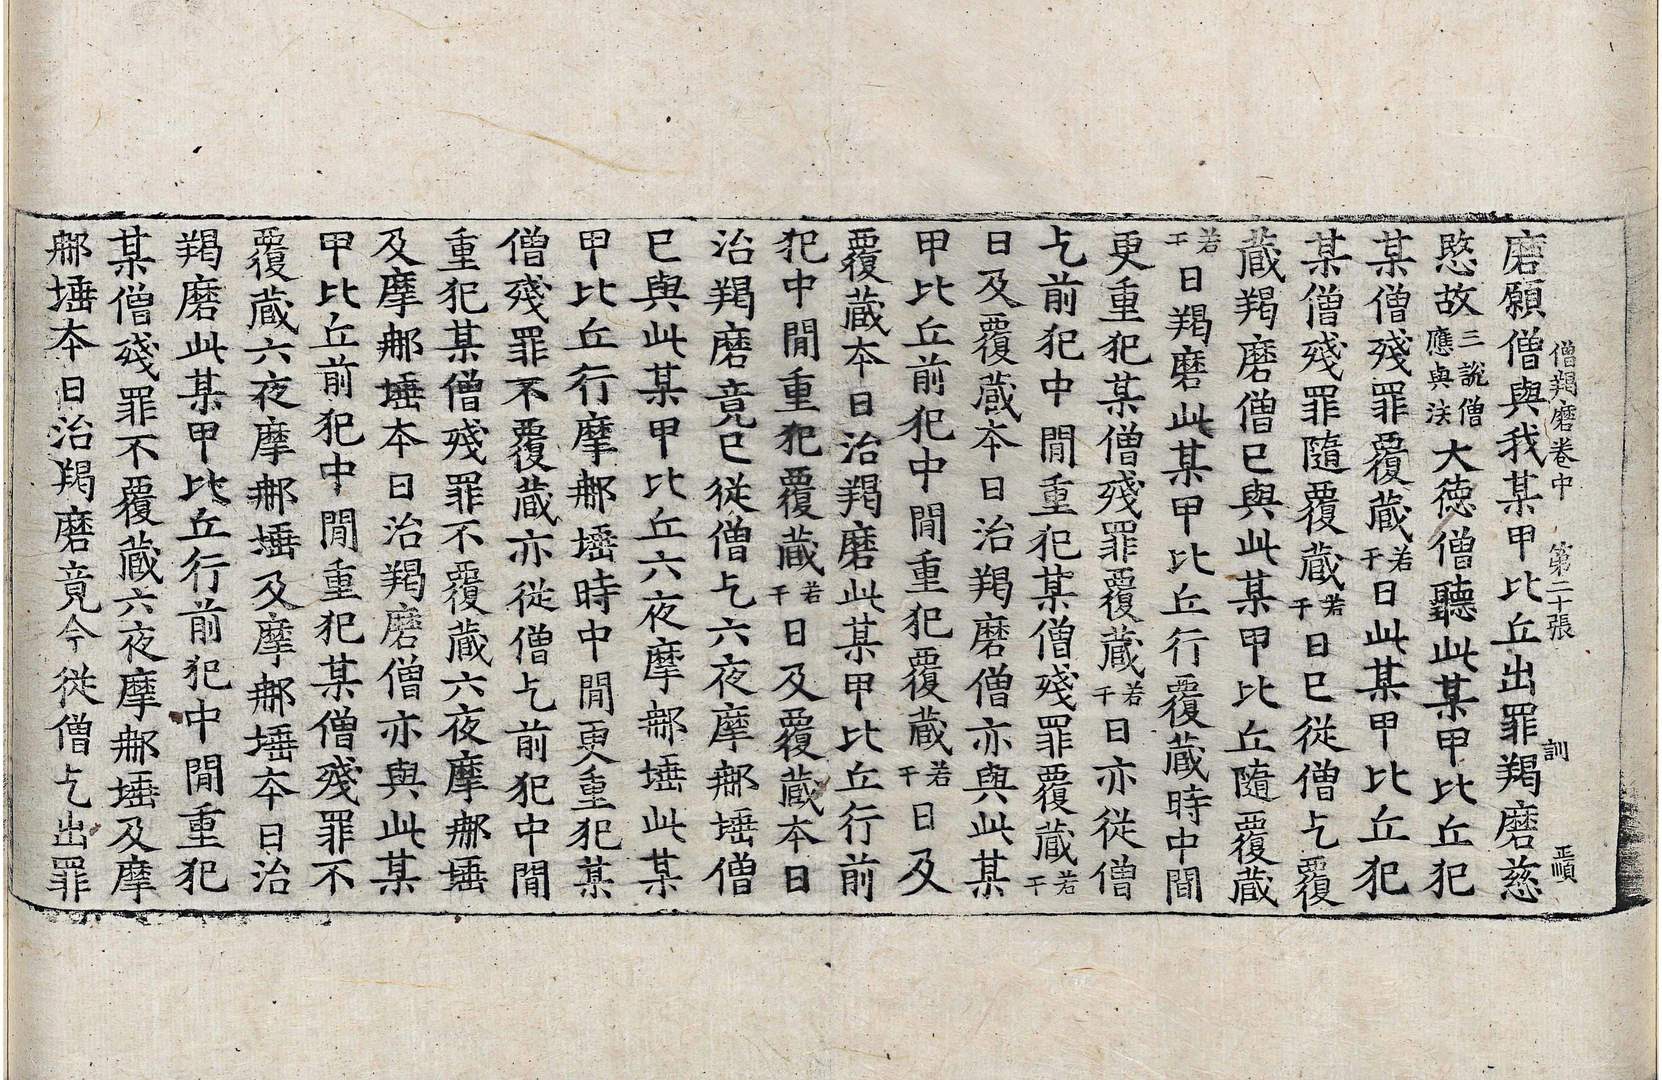 僧羯磨卷中 第二十張 訓 正順
磨願僧與我某甲比丘出罪羯磨慈
愍故三說僧應與法大德僧聽此某甲比丘犯
某僧殘罪覆藏若干日此某甲比丘犯
某僧殘罪隨覆藏若干日已從僧乞覆
藏羯磨僧已與此某甲比丘隨覆藏
若干日羯磨此某甲比丘行覆藏時中間
更重犯某僧殘罪覆藏若干日亦從僧
乞前犯中閒重犯某僧殘罪覆藏若干
日及覆藏夲日治羯磨僧亦與此某
甲比丘前犯中閒重犯覆藏若干日及
覆藏夲日治羯磨此某甲比丘行前
犯中閒重犯覆藏若干日及覆藏本日
治羯磨竟已從僧乞六夜摩那埵僧
已與此某甲比丘六夜摩那埵此某
甲比丘行摩那埵時中閒更重犯某
僧殘罪不覆藏亦從僧乞前犯中閒
重犯某僧殘罪不覆藏六夜摩那埵
及摩那埵夲日治羯磨僧亦與此某
甲比丘前犯中閒重犯某僧殘罪不
覆藏六夜摩那埵及摩那埵夲日治
羯磨此某甲比丘行前犯中閒重犯
某僧殘罪不覆藏六夜摩那埵及摩
那埵夲日治羯磨竟今從僧乞出罪